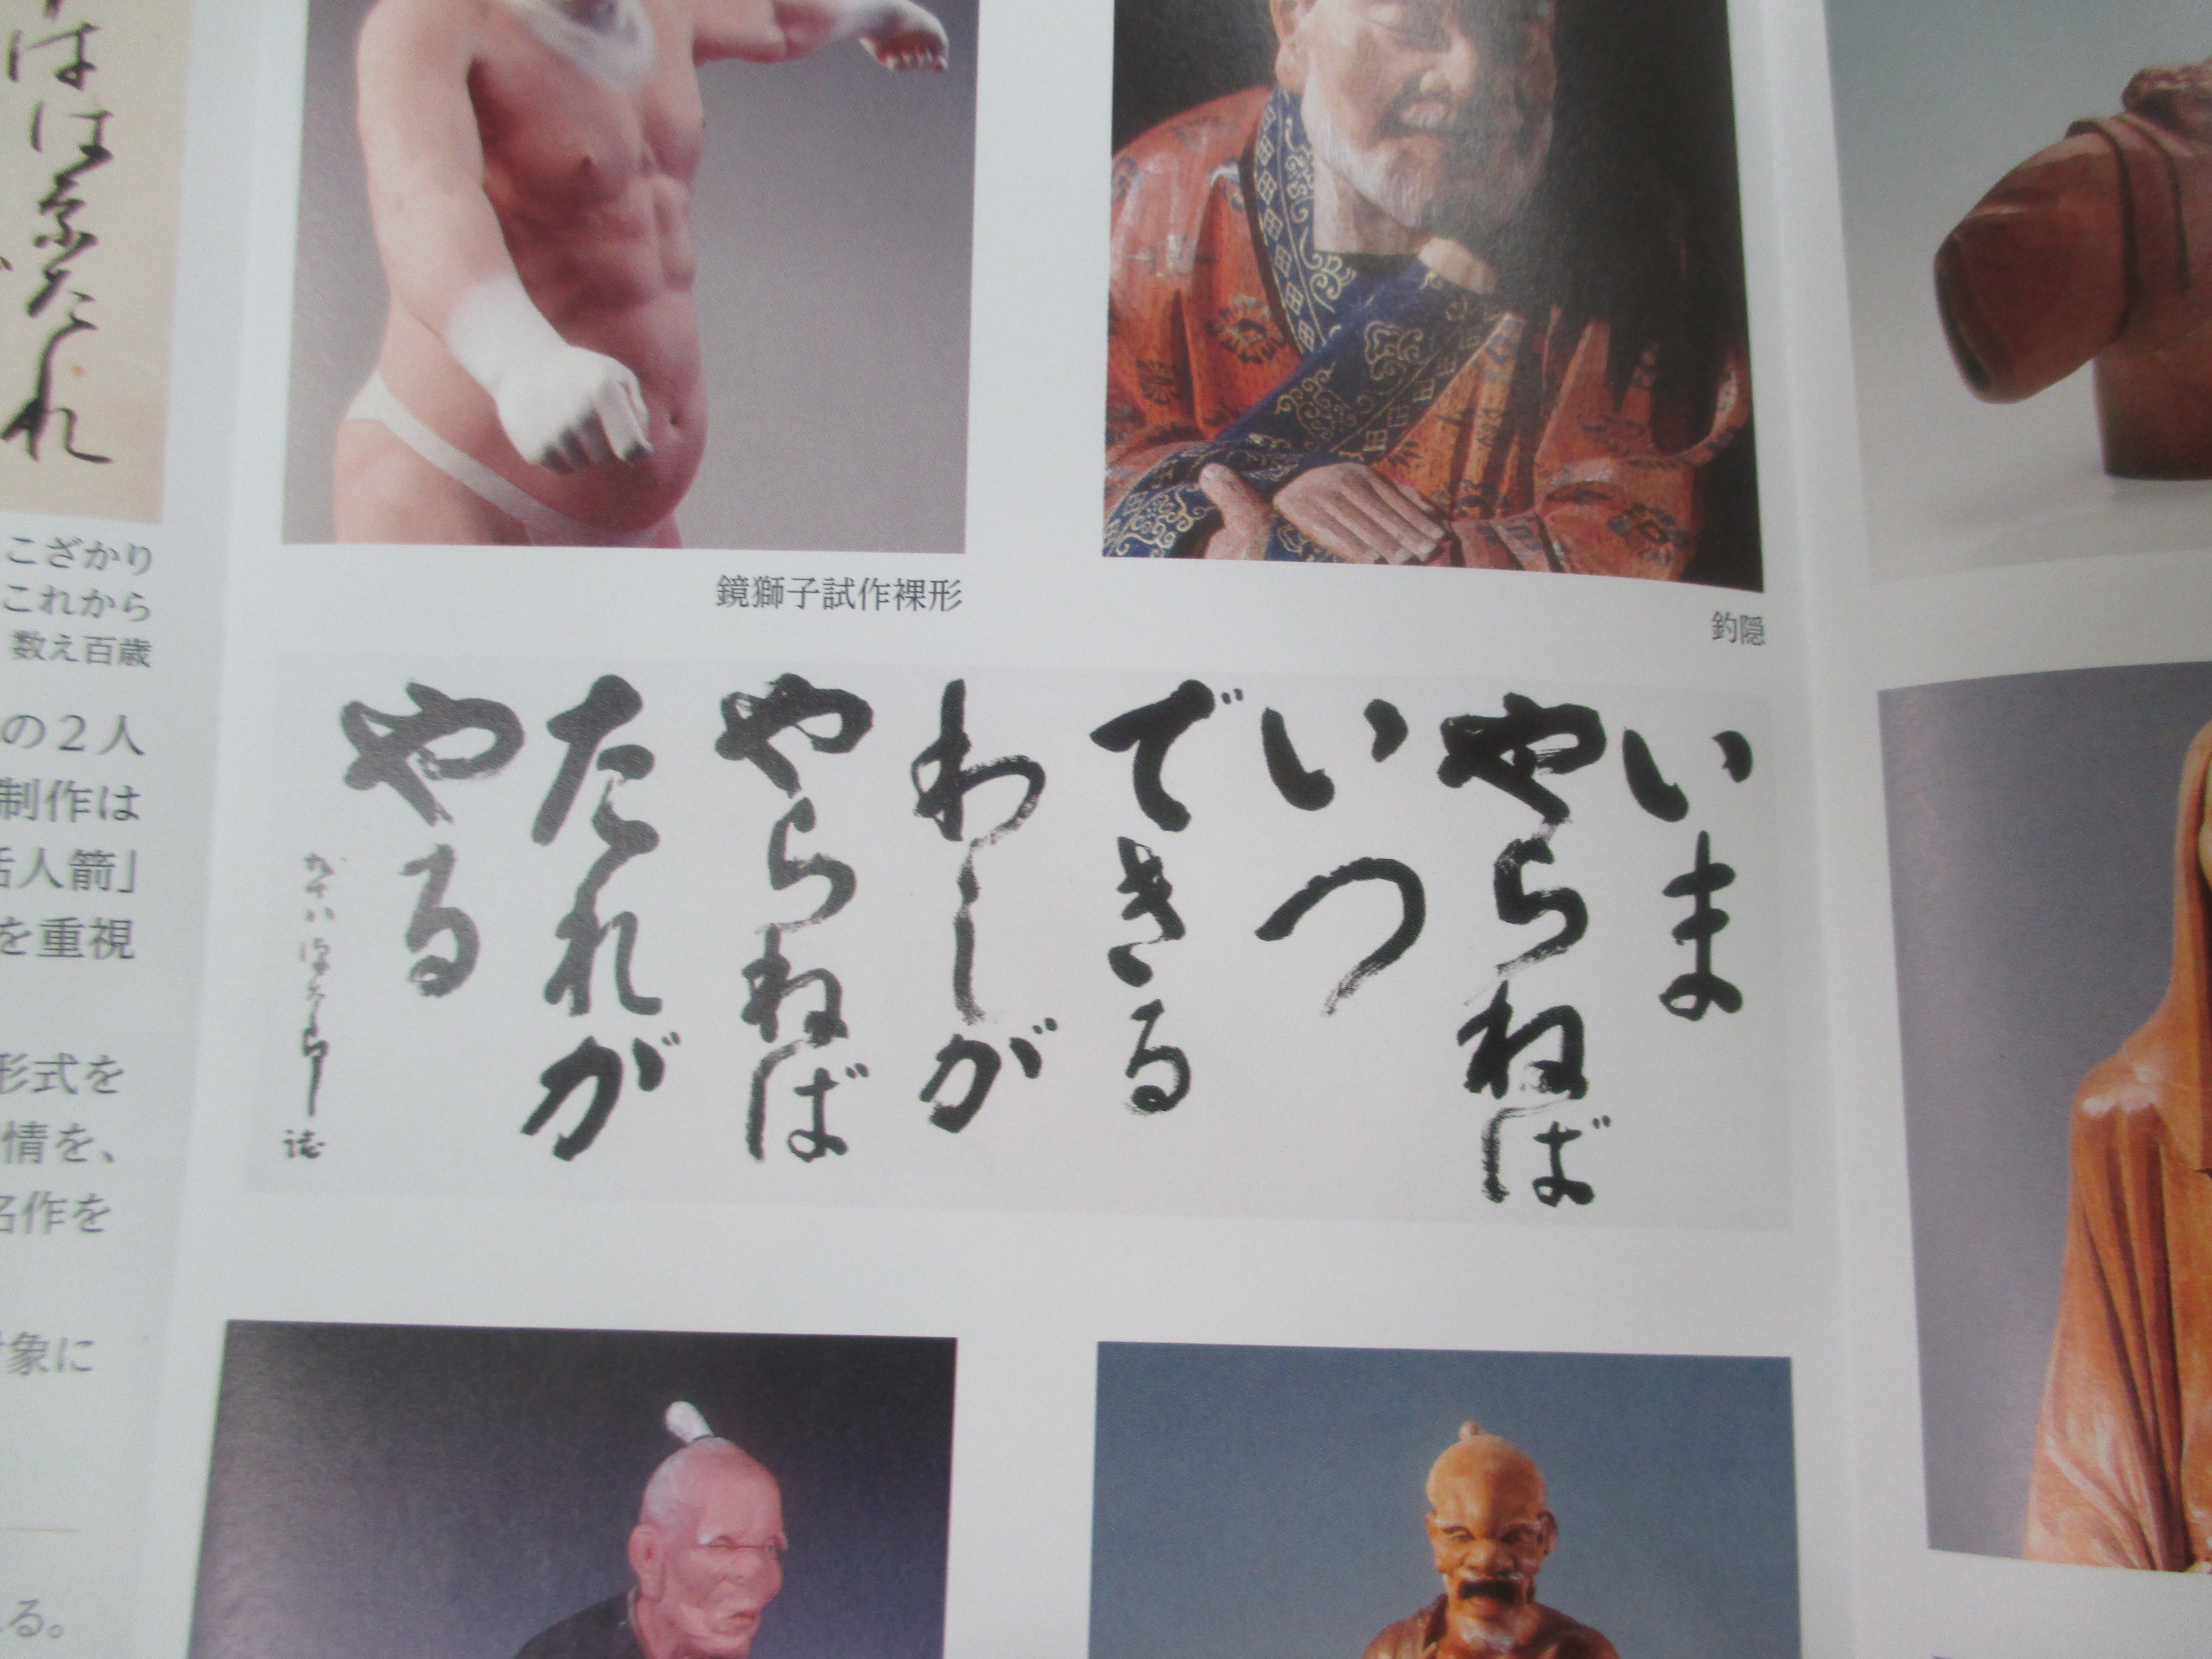 鏡獅子試作裸形
釣隠
いま
やらねば
いつ
できる
わしが
やらねば
たれが
やる
九十八 田中 誌
ははそ
たれ
こざかり
これから
数え百歳
の２人
制作は
活人箭」
を重視
形式を
情を、
名作を
対象に
る。